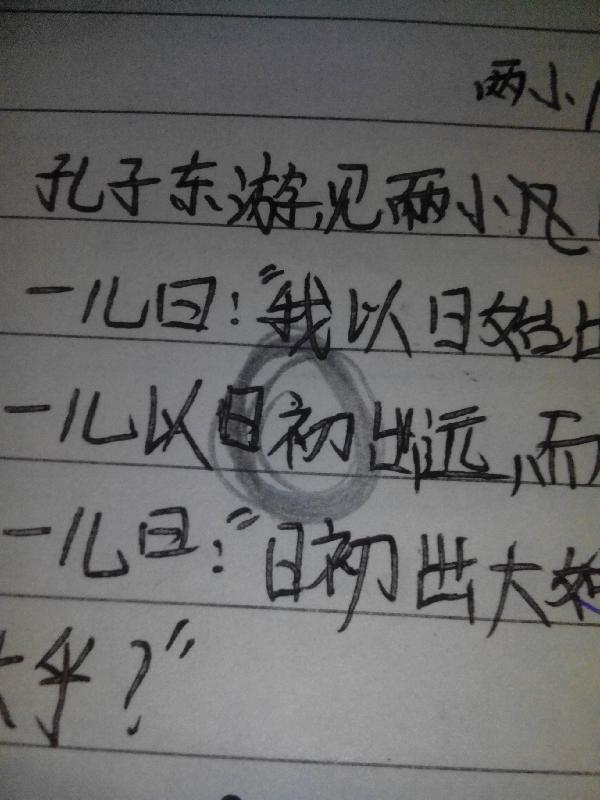 两小
孔子东游,见两小児
一儿曰:“我以日始出
一儿以日初出远,而
一儿曰:“日初出大如
大乎?”